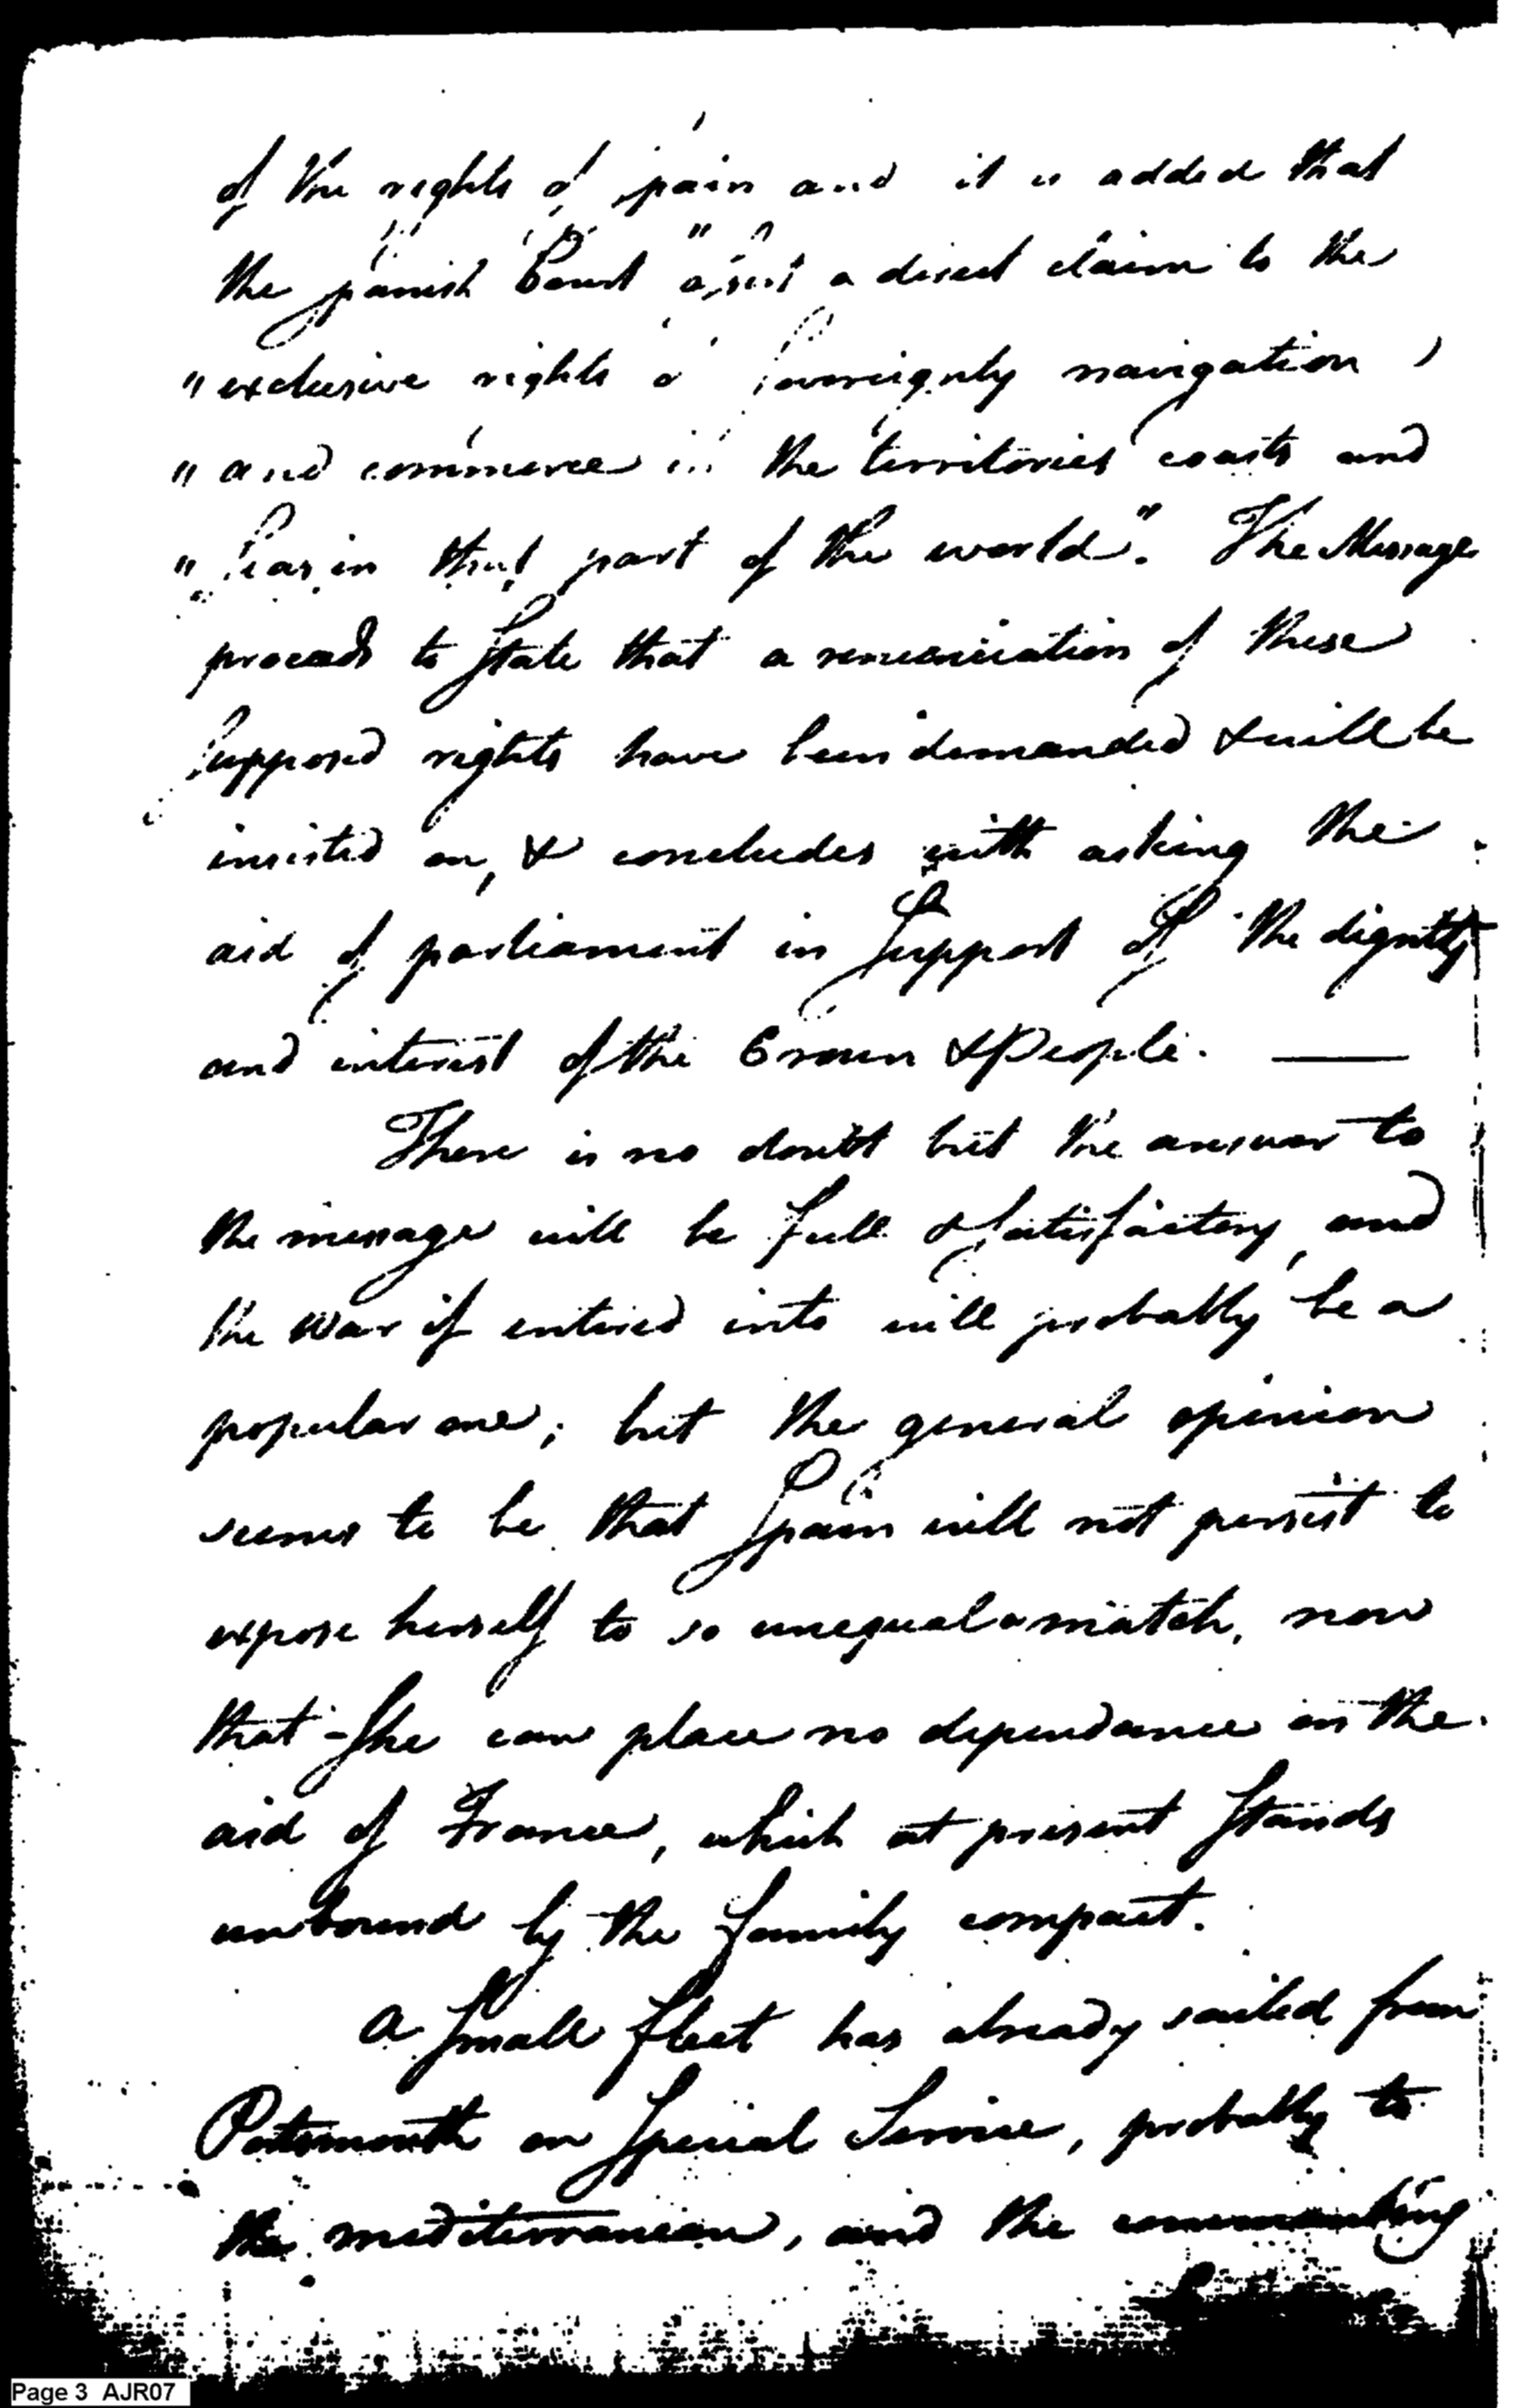 of the rights of Spain and it is added that
the Spanish Court "assert a direct claim to the
"exclusive rights of Sovereignty navigation
"and commerce in the territories coasts and
"Seas in that part of the world". The Message
proceeds to State that a renunciation of these
Supposed rights have been demanded & will be
insisted on, & concludes with asking the
aid of parliament in Support of the dignity
and interest of the Crown & People. —
There is no doubt but the answer to
the message will be full & Satisfactory, and
the War if entered into will probably be a
popular one; but the general opinion
seems to be that Spain will not persist to
expose herself to so unequal a match, now
that She can place no dependance on the
aid of France, which at present Stands
unbound by the family compact.
A Small fleet has already sailed from
Portsmouth on Special Service, probably to
the mediterranean, and the
Page 3 AJR07